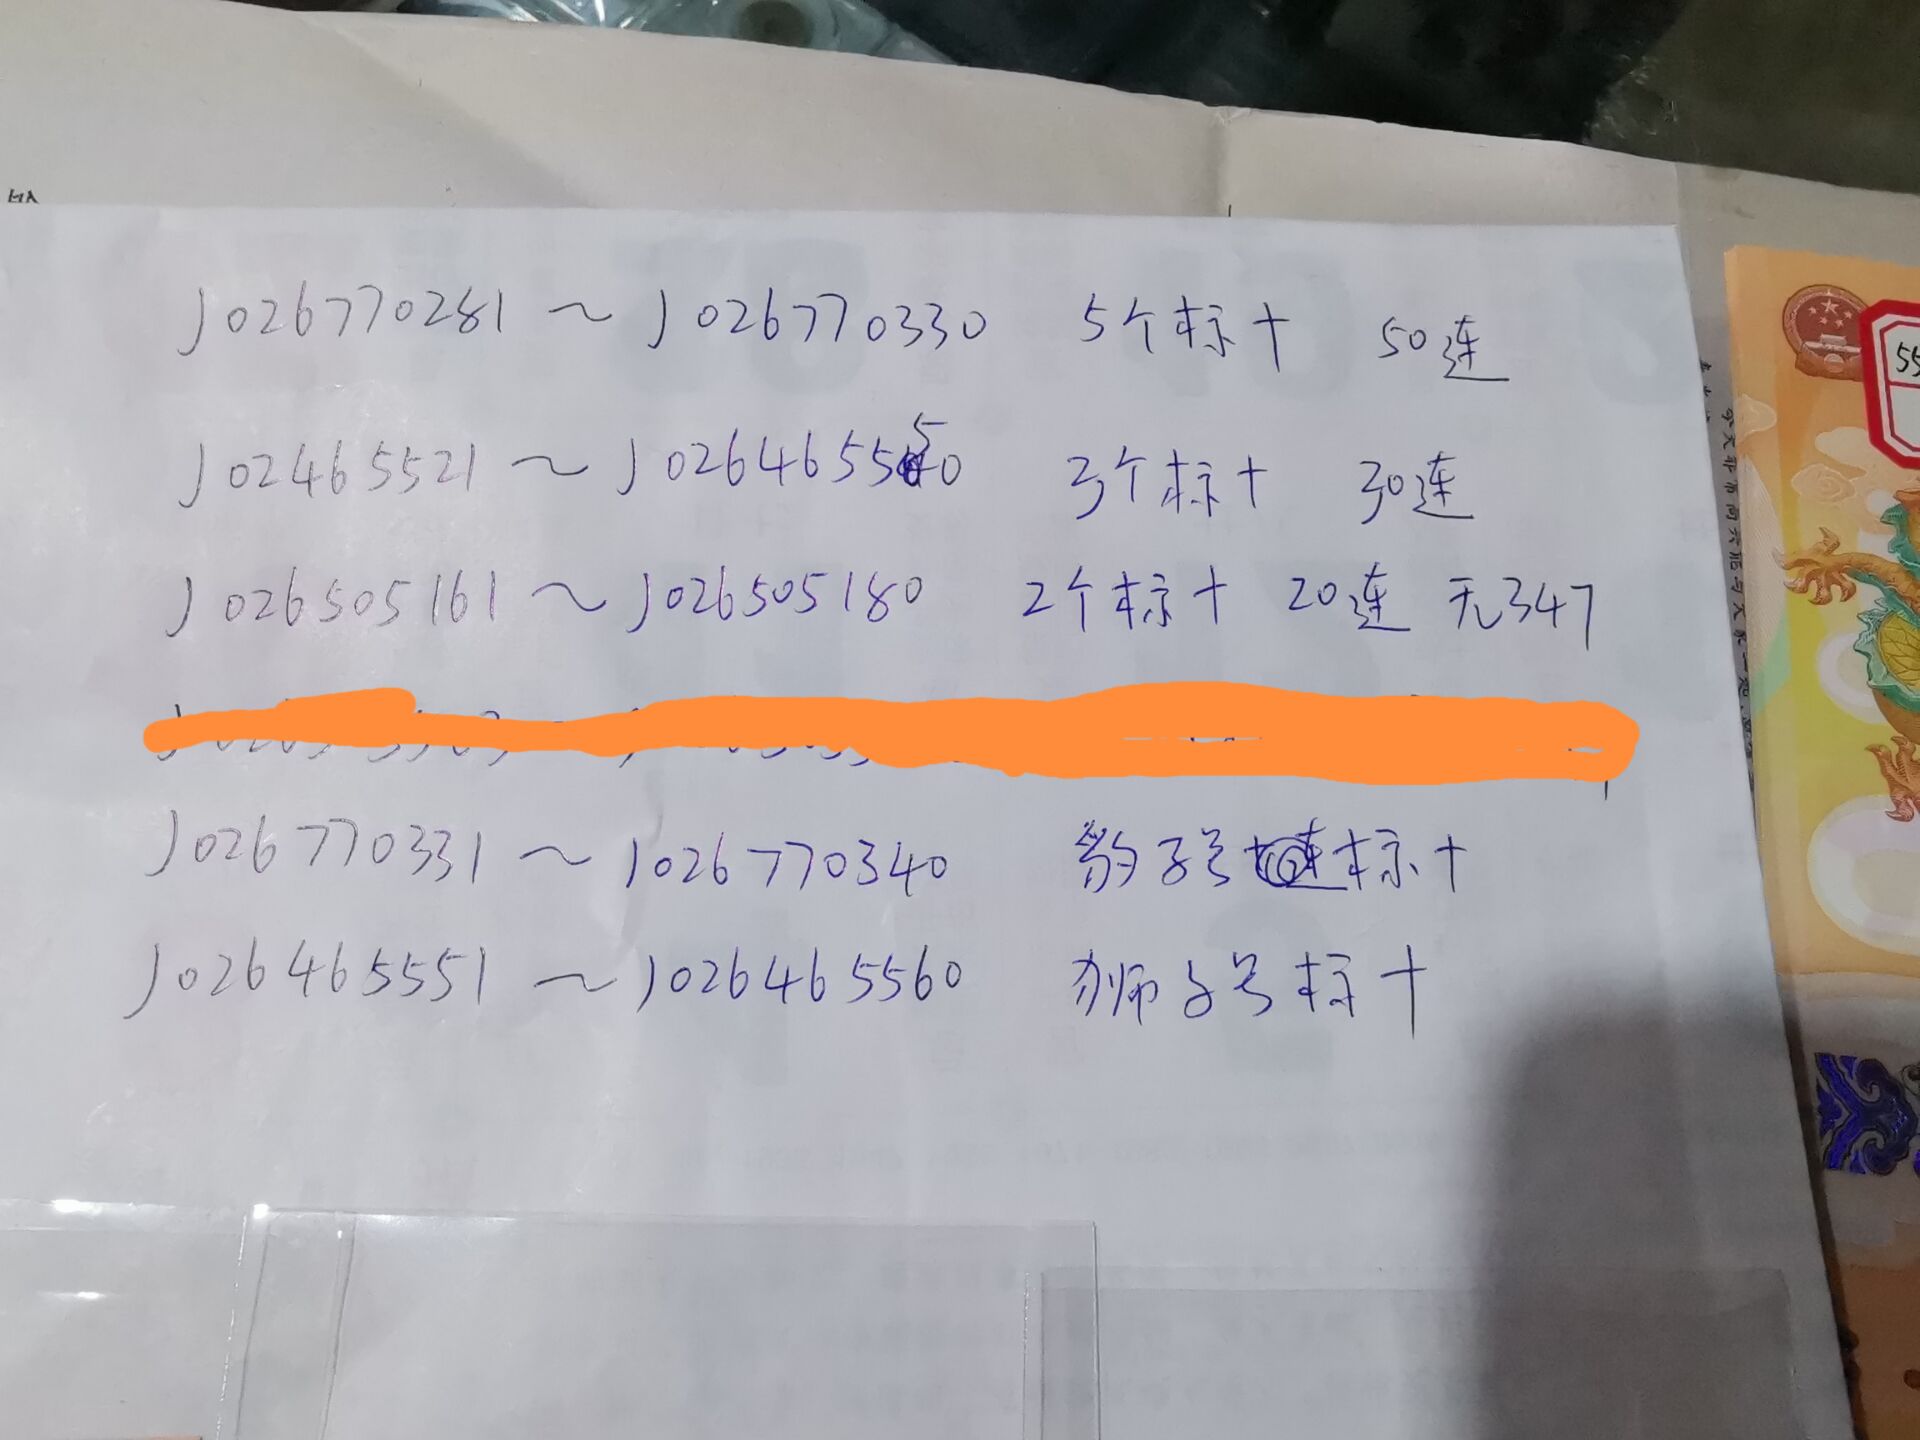 J026770281 ~ J026770330 5个标十 50连
J02465521 ~ J026465550 3个标十 30连
J026505161 ~ J026505180 2个标十 20连 无347
J026770331 ~ J026770340 豹子号 标十
J026465551 ~ J026465560 狮子号标十
55